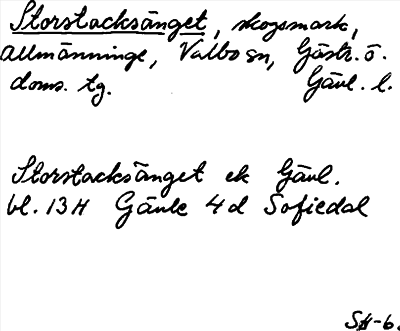 Storstacksänget, skogsmark,
Allmänninge, Valbo sn, Gästr. ö.
doms. tg. Gävl. l.
Storstacksänget ek Gävl.
bl. 13H Gävle 4d Sofiedal